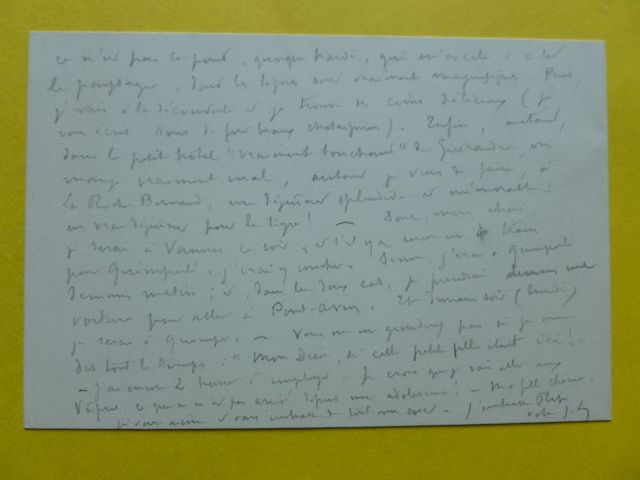 ce n'est pas ce pont, quoique hardi, qui m'excite : c'est
le paysage, dont les lignes sont vraiment magnifiques. Puis,
je vais à la découverte et je trouve des coins délicieux (je
vous écris sous de fort beaux chataigniers). Enfin, autant,
dans le petit hôtel "vraiment touchant" de Guérande, on
mange vraiment mal, autant je viens de faire, à
La Roche Bernard, un déjeuner splendide et mémorable :
un vrai déjeuner pour le tigre ! — Donc, mon chéri,
je serai à Vannes ce soir, et s'il y a encore un train
pour Quimperlé, j'irai y coucher. Sinon, j'irai à Quimperlé
demain matin ; et, dans les deux cas, je prendrai demain une
voiture pour aller à Pont-Aven. Et demain soir (lundi)
je serai à Quimper. — Vous ne me gronderez pas si je me
dis tout le temps : "Mon Dieu, si cette petite fille était ici !"
— J'ai encore 2 heures à employer. Je crois que je vais aller aux
Vêpres, ce qui ne m'est pas arrivé depuis mon adolescence ! — Ma fille chérie,
je vous aime et vous embrasse de tout mon cœur. J'embrasse
votre